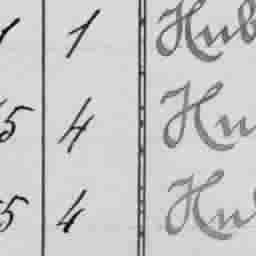 1 1 Hub
5 4 Hu
5 4 Hu